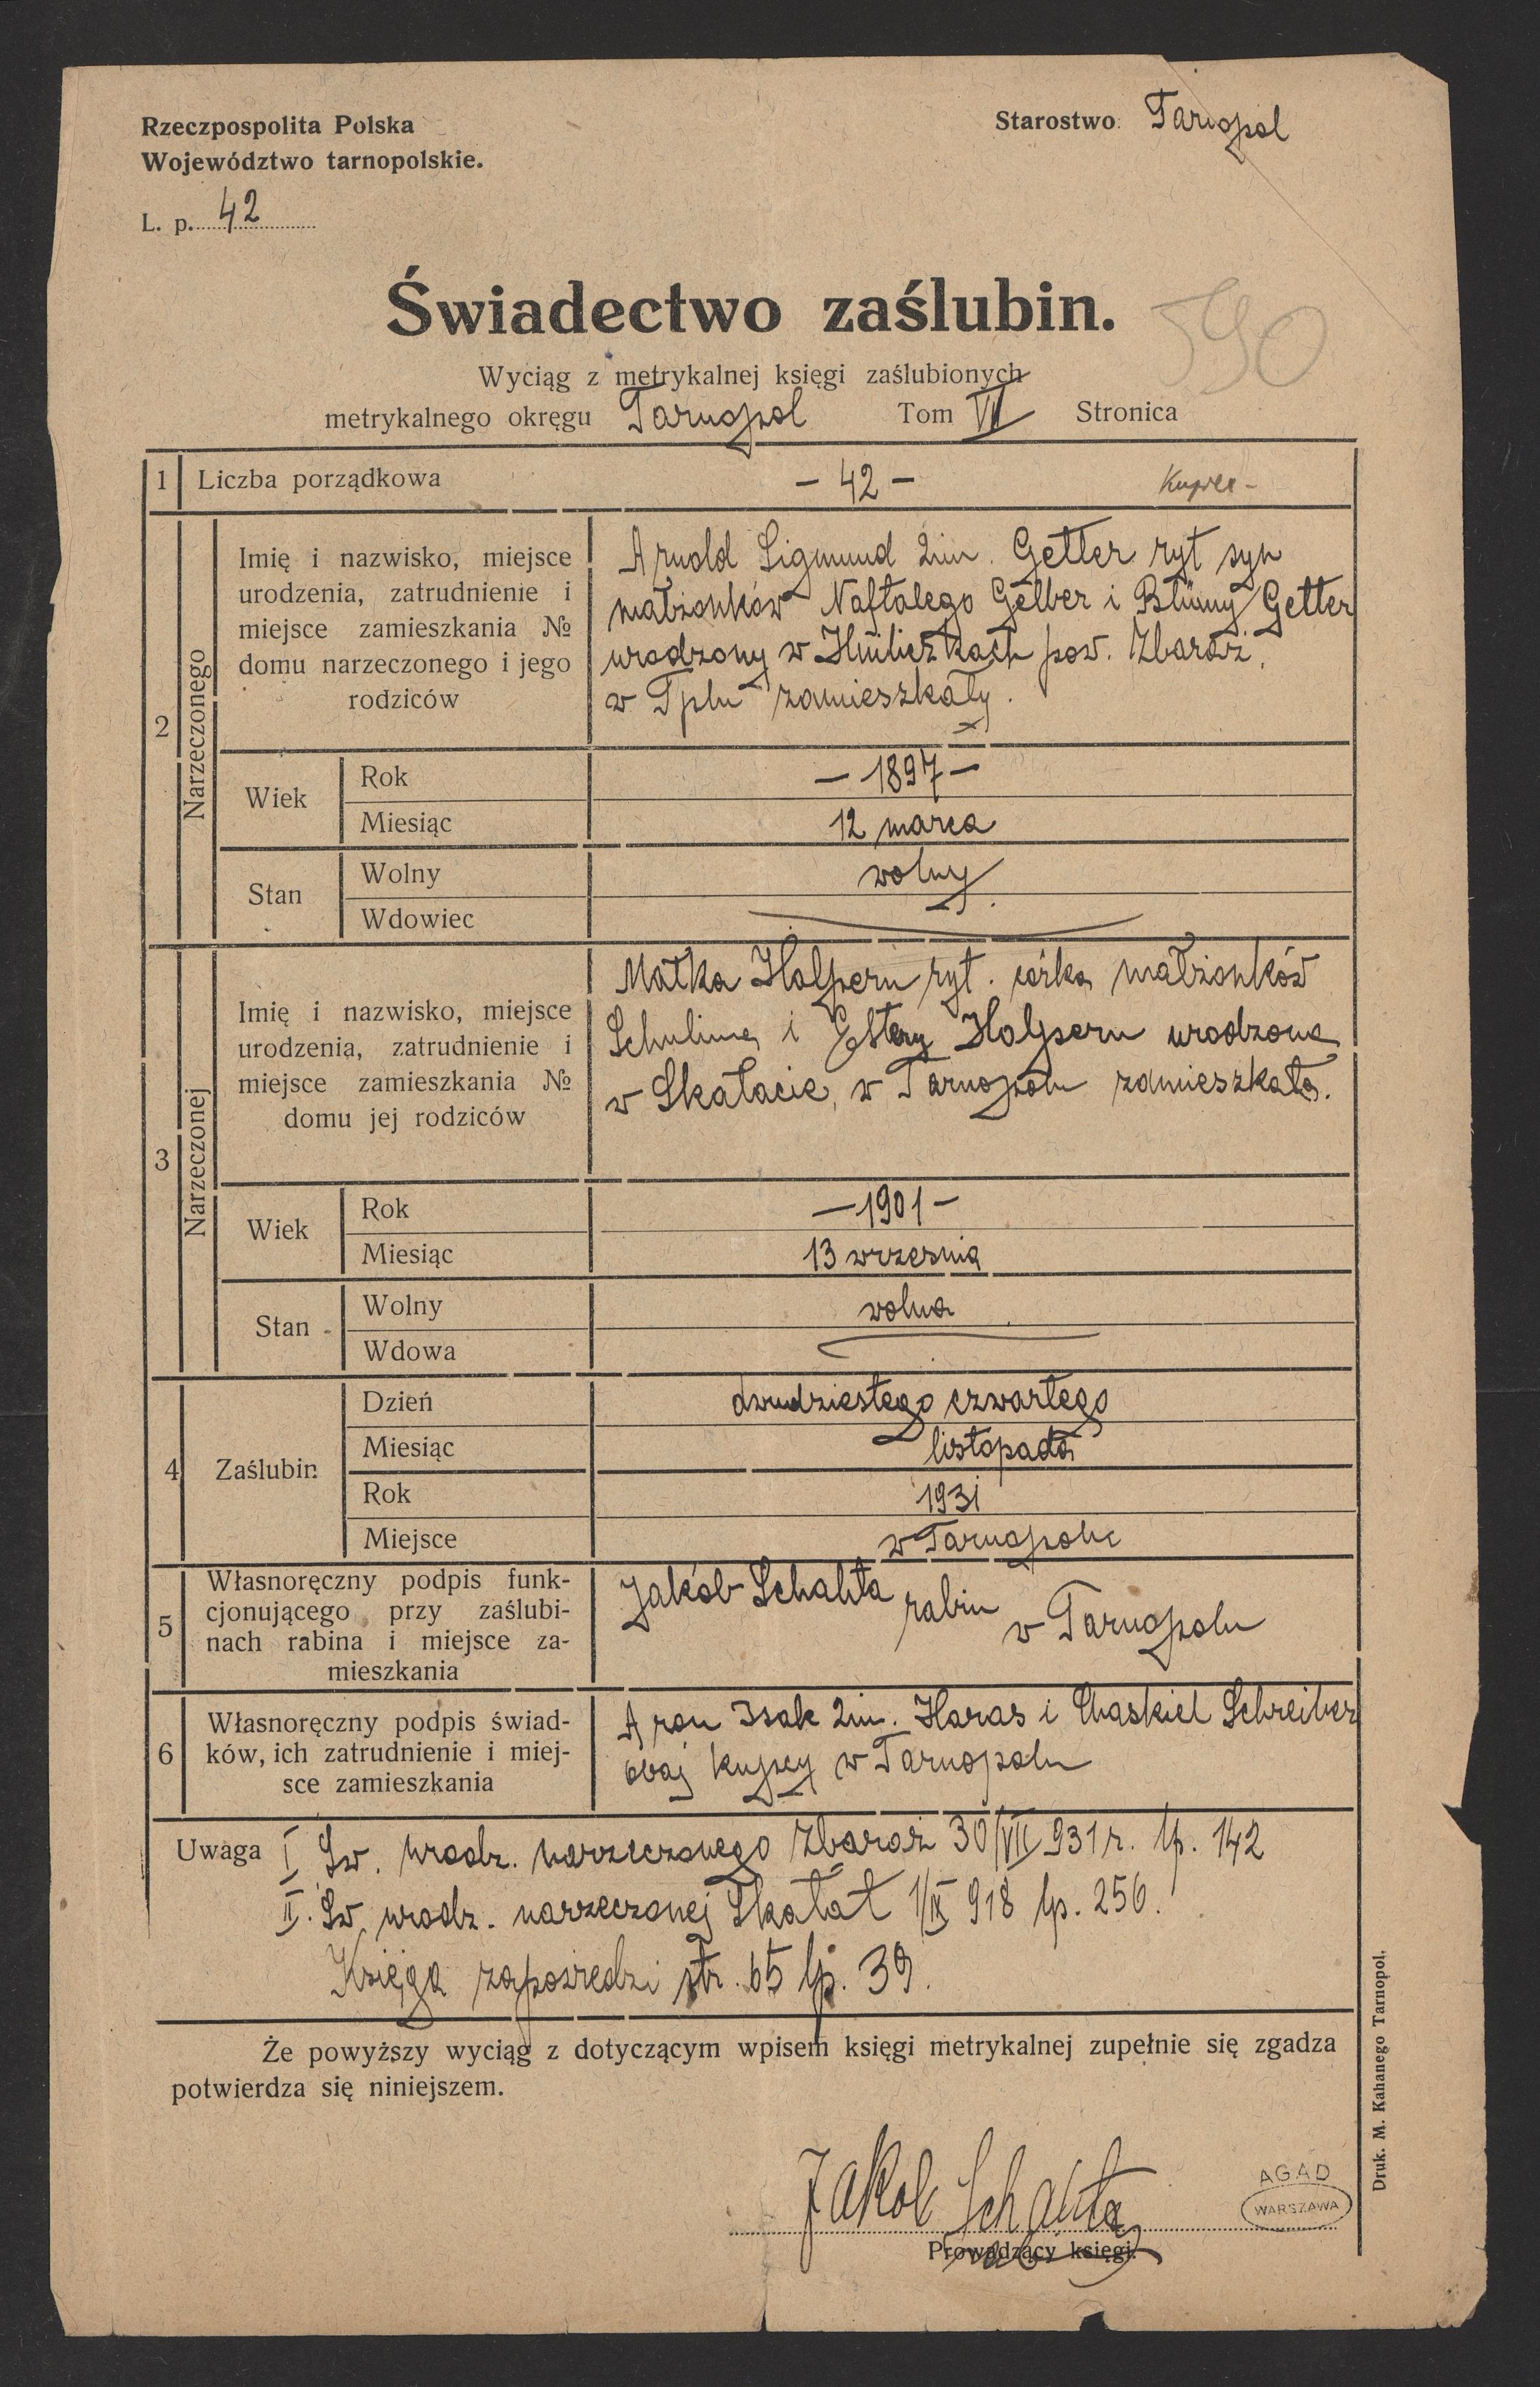 Rzeczpospolita Polska
Województwo tarnopolskie.
Starostwo Tarnopol
L. p. 42
Świadectwo zaślubin.
590
Wyciąg z metrykalnej księgi zaślubionych
metrykalnego okręgu Tarnopol Tom VI Stronica
1 Liczba porządkowa – 42 – Kupiec –
2 Narzeczonego
Imię i nazwisko, miejsce
urodzenia, zatrudnienie i
miejsce zamieszkania №
domu narzeczonego i jego
rodziców
Arnold Sigmund 2im. Getter ryt syn
małżonków Naftalego Gelber i Blümy Getter
urodzony w Hniliczkach pow. Zbaraż,
w Tplu zamieszkały.
Wiek Rok – 1897 –
Miesiąc 12 marca
Stan Wolny wolny
Wdowiec
3 Narzeczonej
Imię i nazwisko, miejsce
urodzenia, zatrudnienie i
miejsce zamieszkania №
domu jej rodziców
Matka Halpern ryt. córka małżonków
Schulima i Estery Halpern urodzona
w Skałacie, w Tarnopolu zamieszkała.
Wiek Rok – 1901 –
Miesiąc 13 września
Stan Wolny wolna
Wdowa
4 Zaślubin Dzień dwudziestego czwartego
Miesiąc listopada
Rok 1931
Miejsce w Tarnopolu
5 Własnoręczny podpis funk-
cjonującego przy zaślubi-
nach rabina i miejsce za-
mieszkania
Jakób Schalita rabin w Tarnopolu
6 Własnoręczny podpis świad-
ków, ich zatrudnienie i miej-
sce zamieszkania
Aron Isak 2im. Haras i Chaskiel Schreiber
obaj kupcy w Tarnopolu
Uwaga I Św. urodz. narzeczonego Zbaraż 30/VII 931 r. lp. 142
II. Św. urodz. narzeczonej Skałat 1/IX 918 lp. 256.
Księga zapowiedzi str. 65 lp. 39.
Że powyższy wyciąg z dotyczącym wpisem księgi metrykalnej zupełnie się zgadza
potwierdza się niniejszem.
Jakob Schalita
Prowadzący księgi.
AGAD
WARSZAWA
Druk. M. Kahanego Tarnopol.